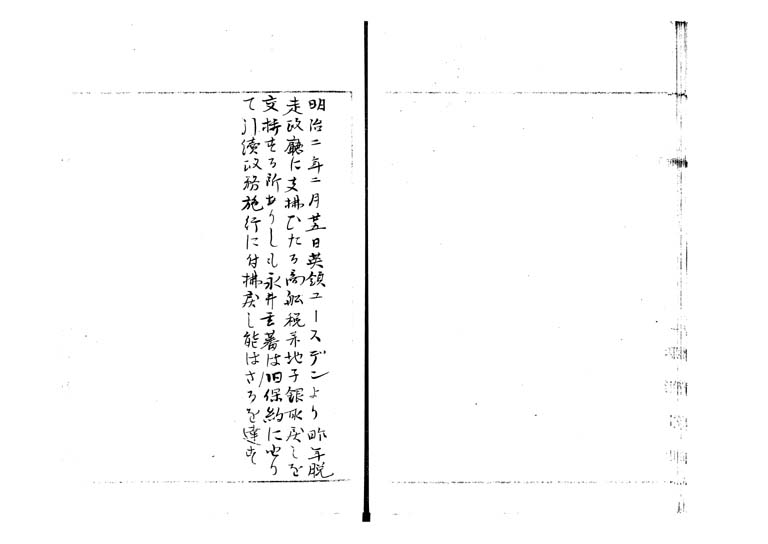 明治二年二月廿五日英領ユースデンより昨年脱
走政廳に支拂ひたる商舩税并地子銀取戻しを
支持する所ありしも永井玄蕃は旧保約により
て引續政務施行に付拂戻し能はさるを達す